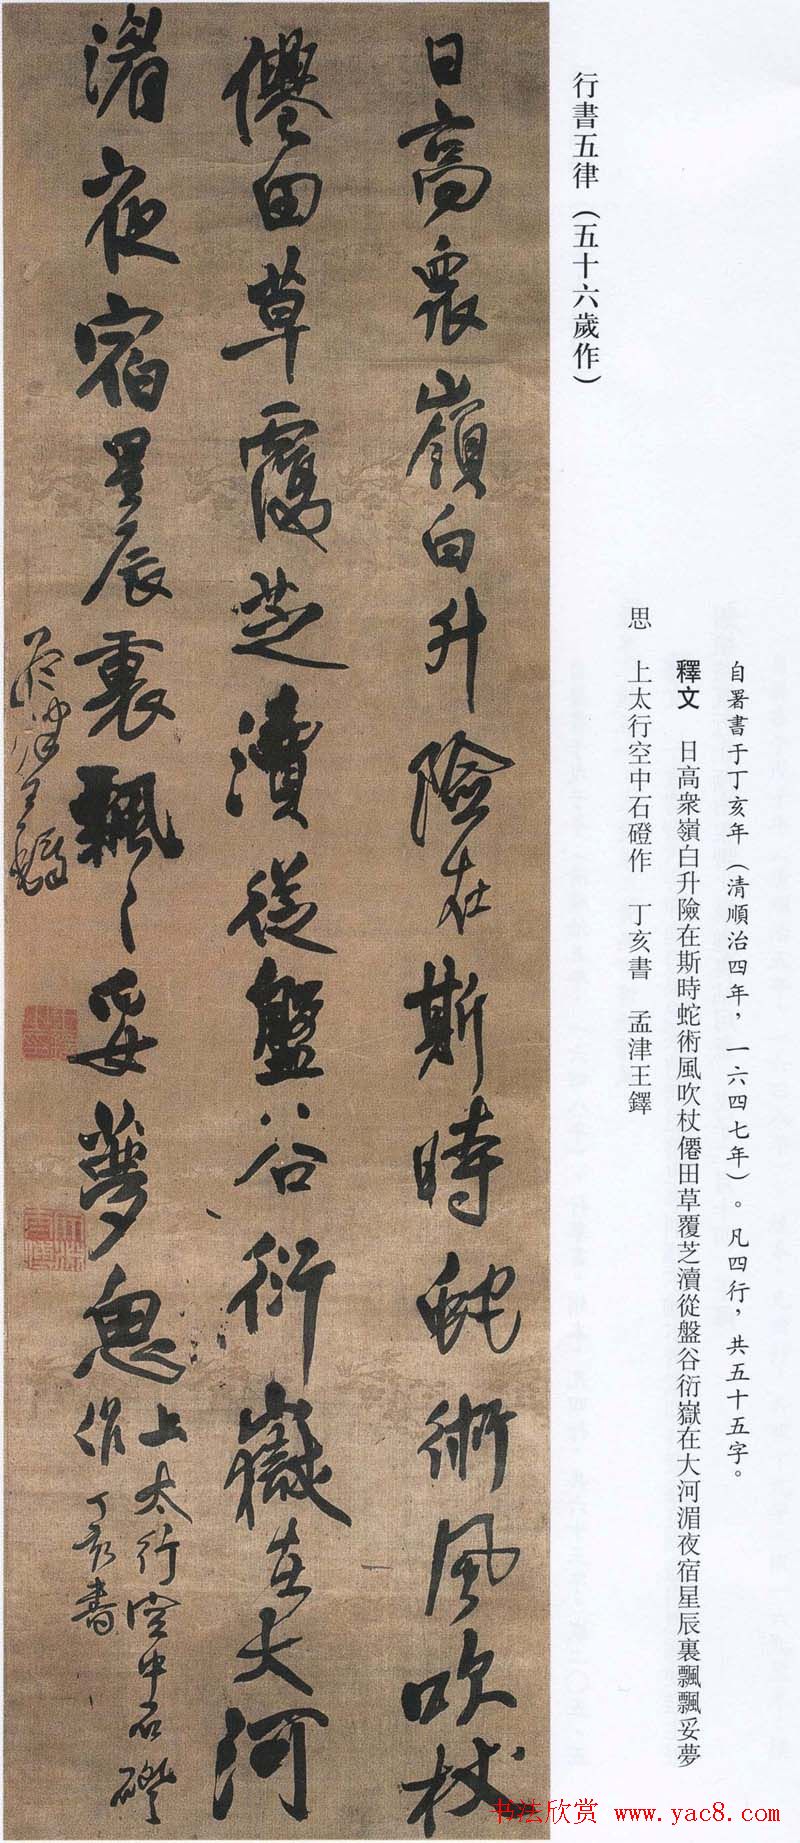 行書五律（五十六歲作）
自署書于丁亥年（清順治四年，一六四七年）。凡四行，共五十五字。
釋文　日高衆嶺白升險在斯時蛇術風吹杖僊田草覆芝瀆從盤谷衍嶽在大河湄夜宿星辰裏飄飄妥夢
思　上太行空中石磴作　丁亥書　孟津王鐸
日高衆嶺白升險在斯時蛇術風吹杖
僊田草覆芝瀆從盤谷衍嶽在大河
湄夜宿星辰裏飄〻妥夢思
上太行空中石磴
作　丁亥書
孟津王鐸
书法欣赏 www.yac8.com